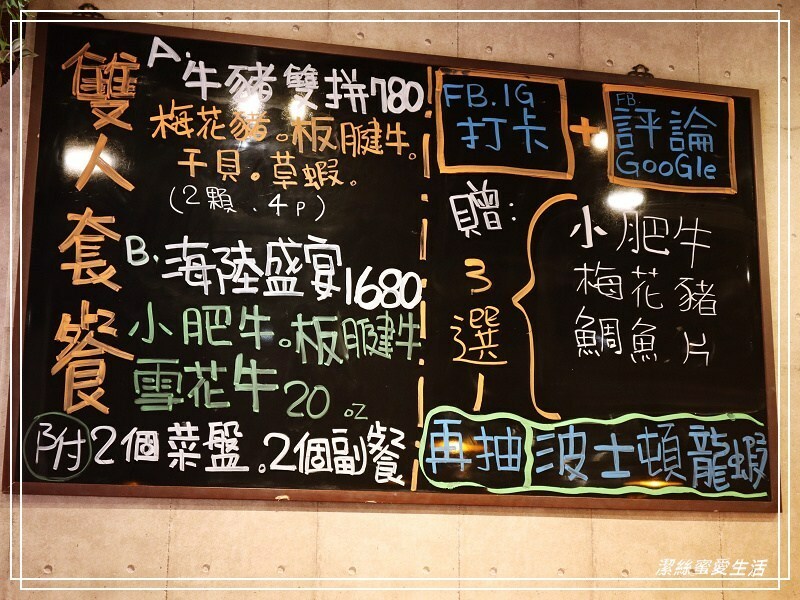 雙人套餐
A. 牛豬雙拼780
梅花豬。板腱牛。
干貝。草蝦。
(2顆、4P)
B. 海陸盛宴1680
小肥牛。板腱牛
雪花牛20oz
附2個菜盤。2個副餐
FB.IG
打卡
+
FB.
評論
GooGle
贈:
3選1
小肥牛
梅花豬
鯛魚片
再抽波士頓龍蝦
潔絲蜜愛生活